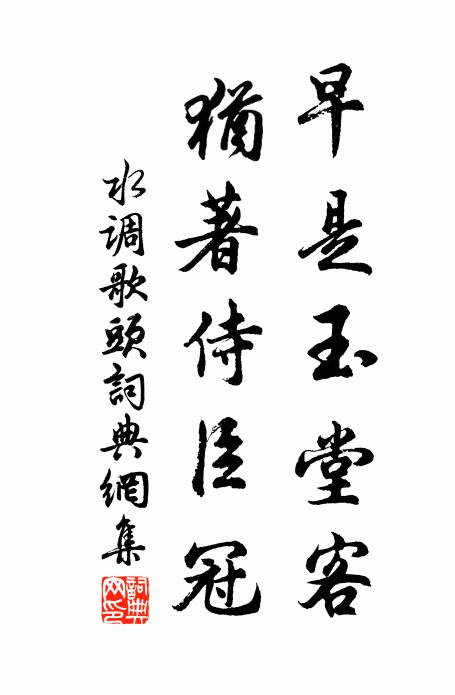 早是玉堂客
猶著侍臣冠
水调歌頭詞典網集
詞典网印